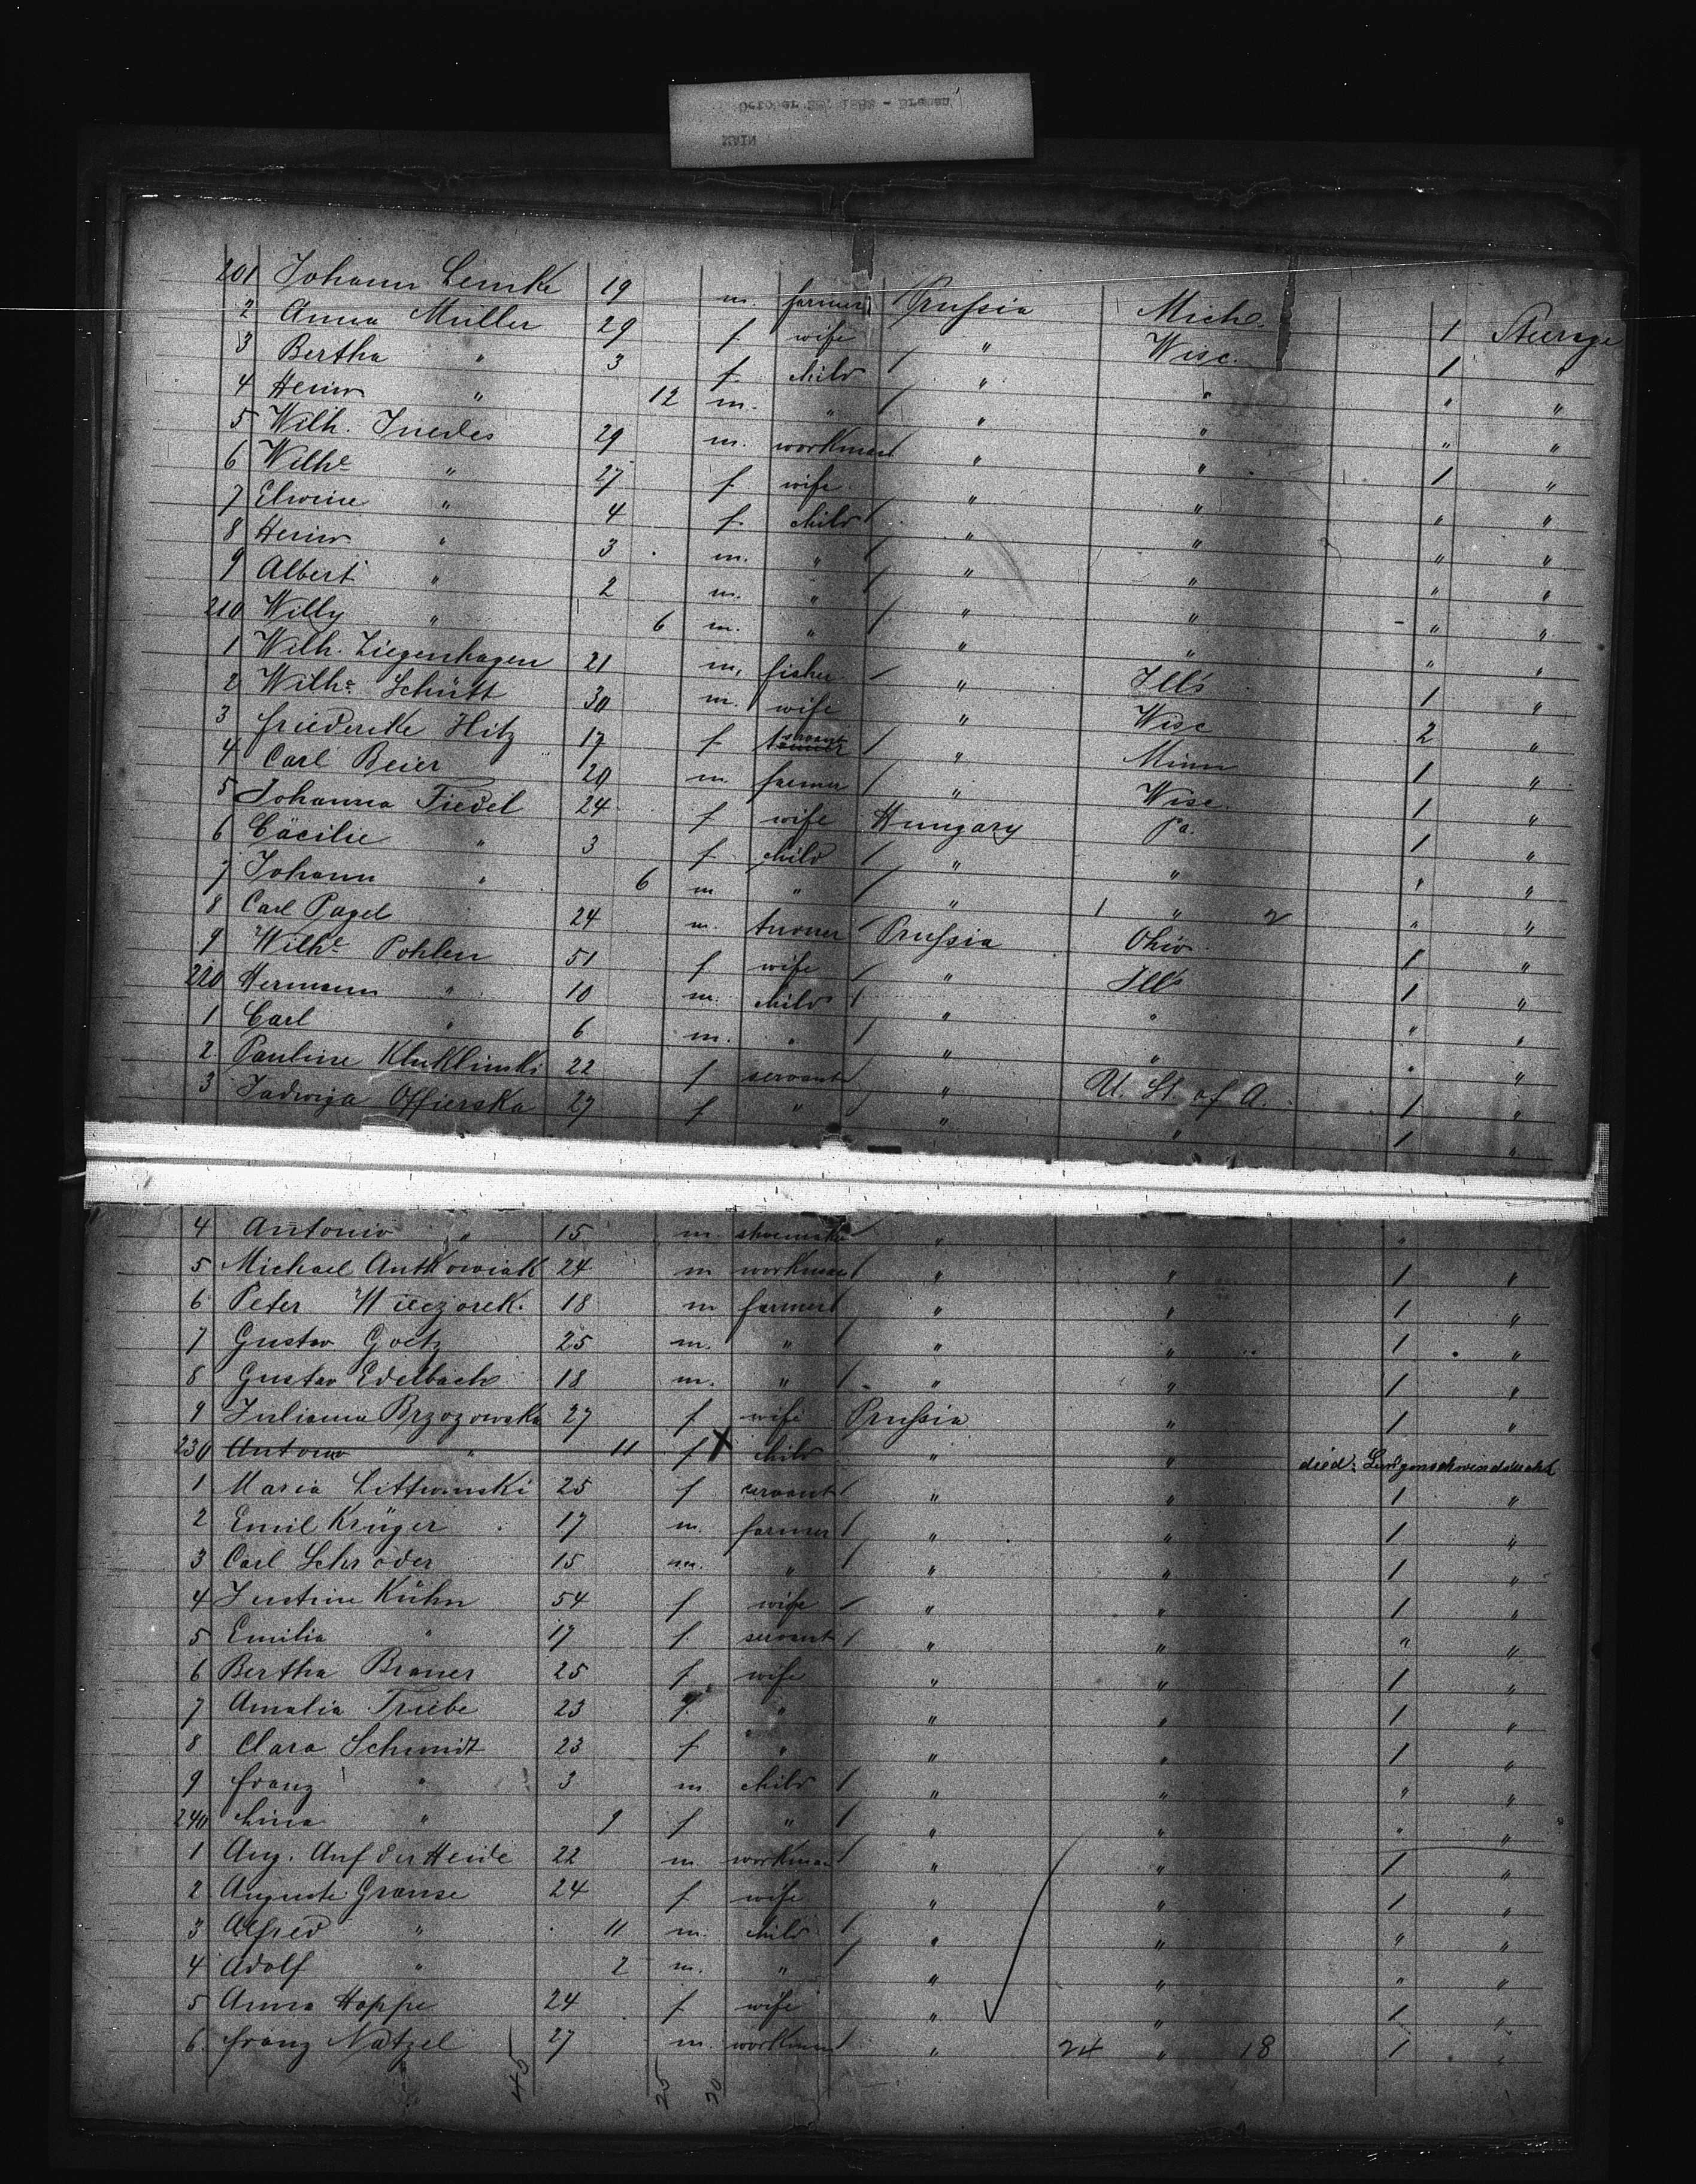 October 1888 - Bremen
MAIN
201 Johann Lemke 19 m. farmer Prussia Mich. 1 Steerage
2 Anna Müller 29 f. wife " Wisc. 1 "
3 Bertha " 3 f. child " " " "
4 Heinr " 12 m. " " " " "
5 Wilh. 29 m. workman " " 1 "
6 Wilhe " 27 f wife " " " "
7 Elwine " 4 f. child " " " "
8 Heinr " 3 m. " " " " "
9 Albert " 2 m. " " " " "
210 Willy " 6 m. " " " " "
1 Wilh. Ziegenhagen 21 m. fisher " Ills 1 "
2 Wilhe Schütt 30 m. wife " Wisc 2 "
3 Friederike Hitz 17 f servant " Minn 1 "
4 Carl Beier 20 m farmer " Wisc. 1 "
5 Johanna Tiedel 24 f wife Hungary Pa. 1 "
6 Cäcilie " 3 f child " " " "
7 Johann " 6 m " " 1 " 2 " "
8 Carl Pagel 24 m. turner Prussia Ohio 1 "
9 Wilhe Pohlen 51 f wife " Ills 1 "
220 Hermann " 10 m. child " " " "
1 Carl " 6 m. " " " " "
2 Pauline Kluklinski 22 f servant " U. St. of A. 1 "
3 Jadwiga Offierska 27 f " " " 1 "
4 Antonio " 15 m shoemaker " "
5 Michael Antkowiak 24 m workman " " 1 "
6 Peter Wieczorek. 18 m farmer " " 1 "
7 Gustav Goetz 25 m. " " " 1 "
8 Gustav Edelbach 18 m. " " " 1 "
9 Julianna Brzozowska 27 f wife Prussia " 1 "
230 Antonio " 11 f X child " " died: Lungenschwindsucht
1 Maria Littwinski 25 f servant " " 1 "
2 Emil Krüger 17 m. farmer " " 1 "
3 Carl Schröder 15 m. " " " 1 "
4 Justine Kühn 54 f wife " " 1 "
5 Emilia " 17 f. servant " " " "
6 Bertha Braner 25 f. wife " " 1 "
7 Amalia Triebe 23 f. " " " 1 "
8 Clara Schmidt 23 f " " " 1 "
9 Franz " 3 m child " " " "
240 Lina " 9 f " " " " "
1 Aug. Auf der Heide 22 m. workman " " 1 "
2 Auguste Granse 24 f. wife " " 1 "
3 Alfred " 11 m. child " " " "
4 Adolf " 2 m. " " " " "
5 Anna Hoppe 24 f. wife " " 1 "
6. Franz Natzel 27 m. workman " 24 " 18 1 "
45 25 20